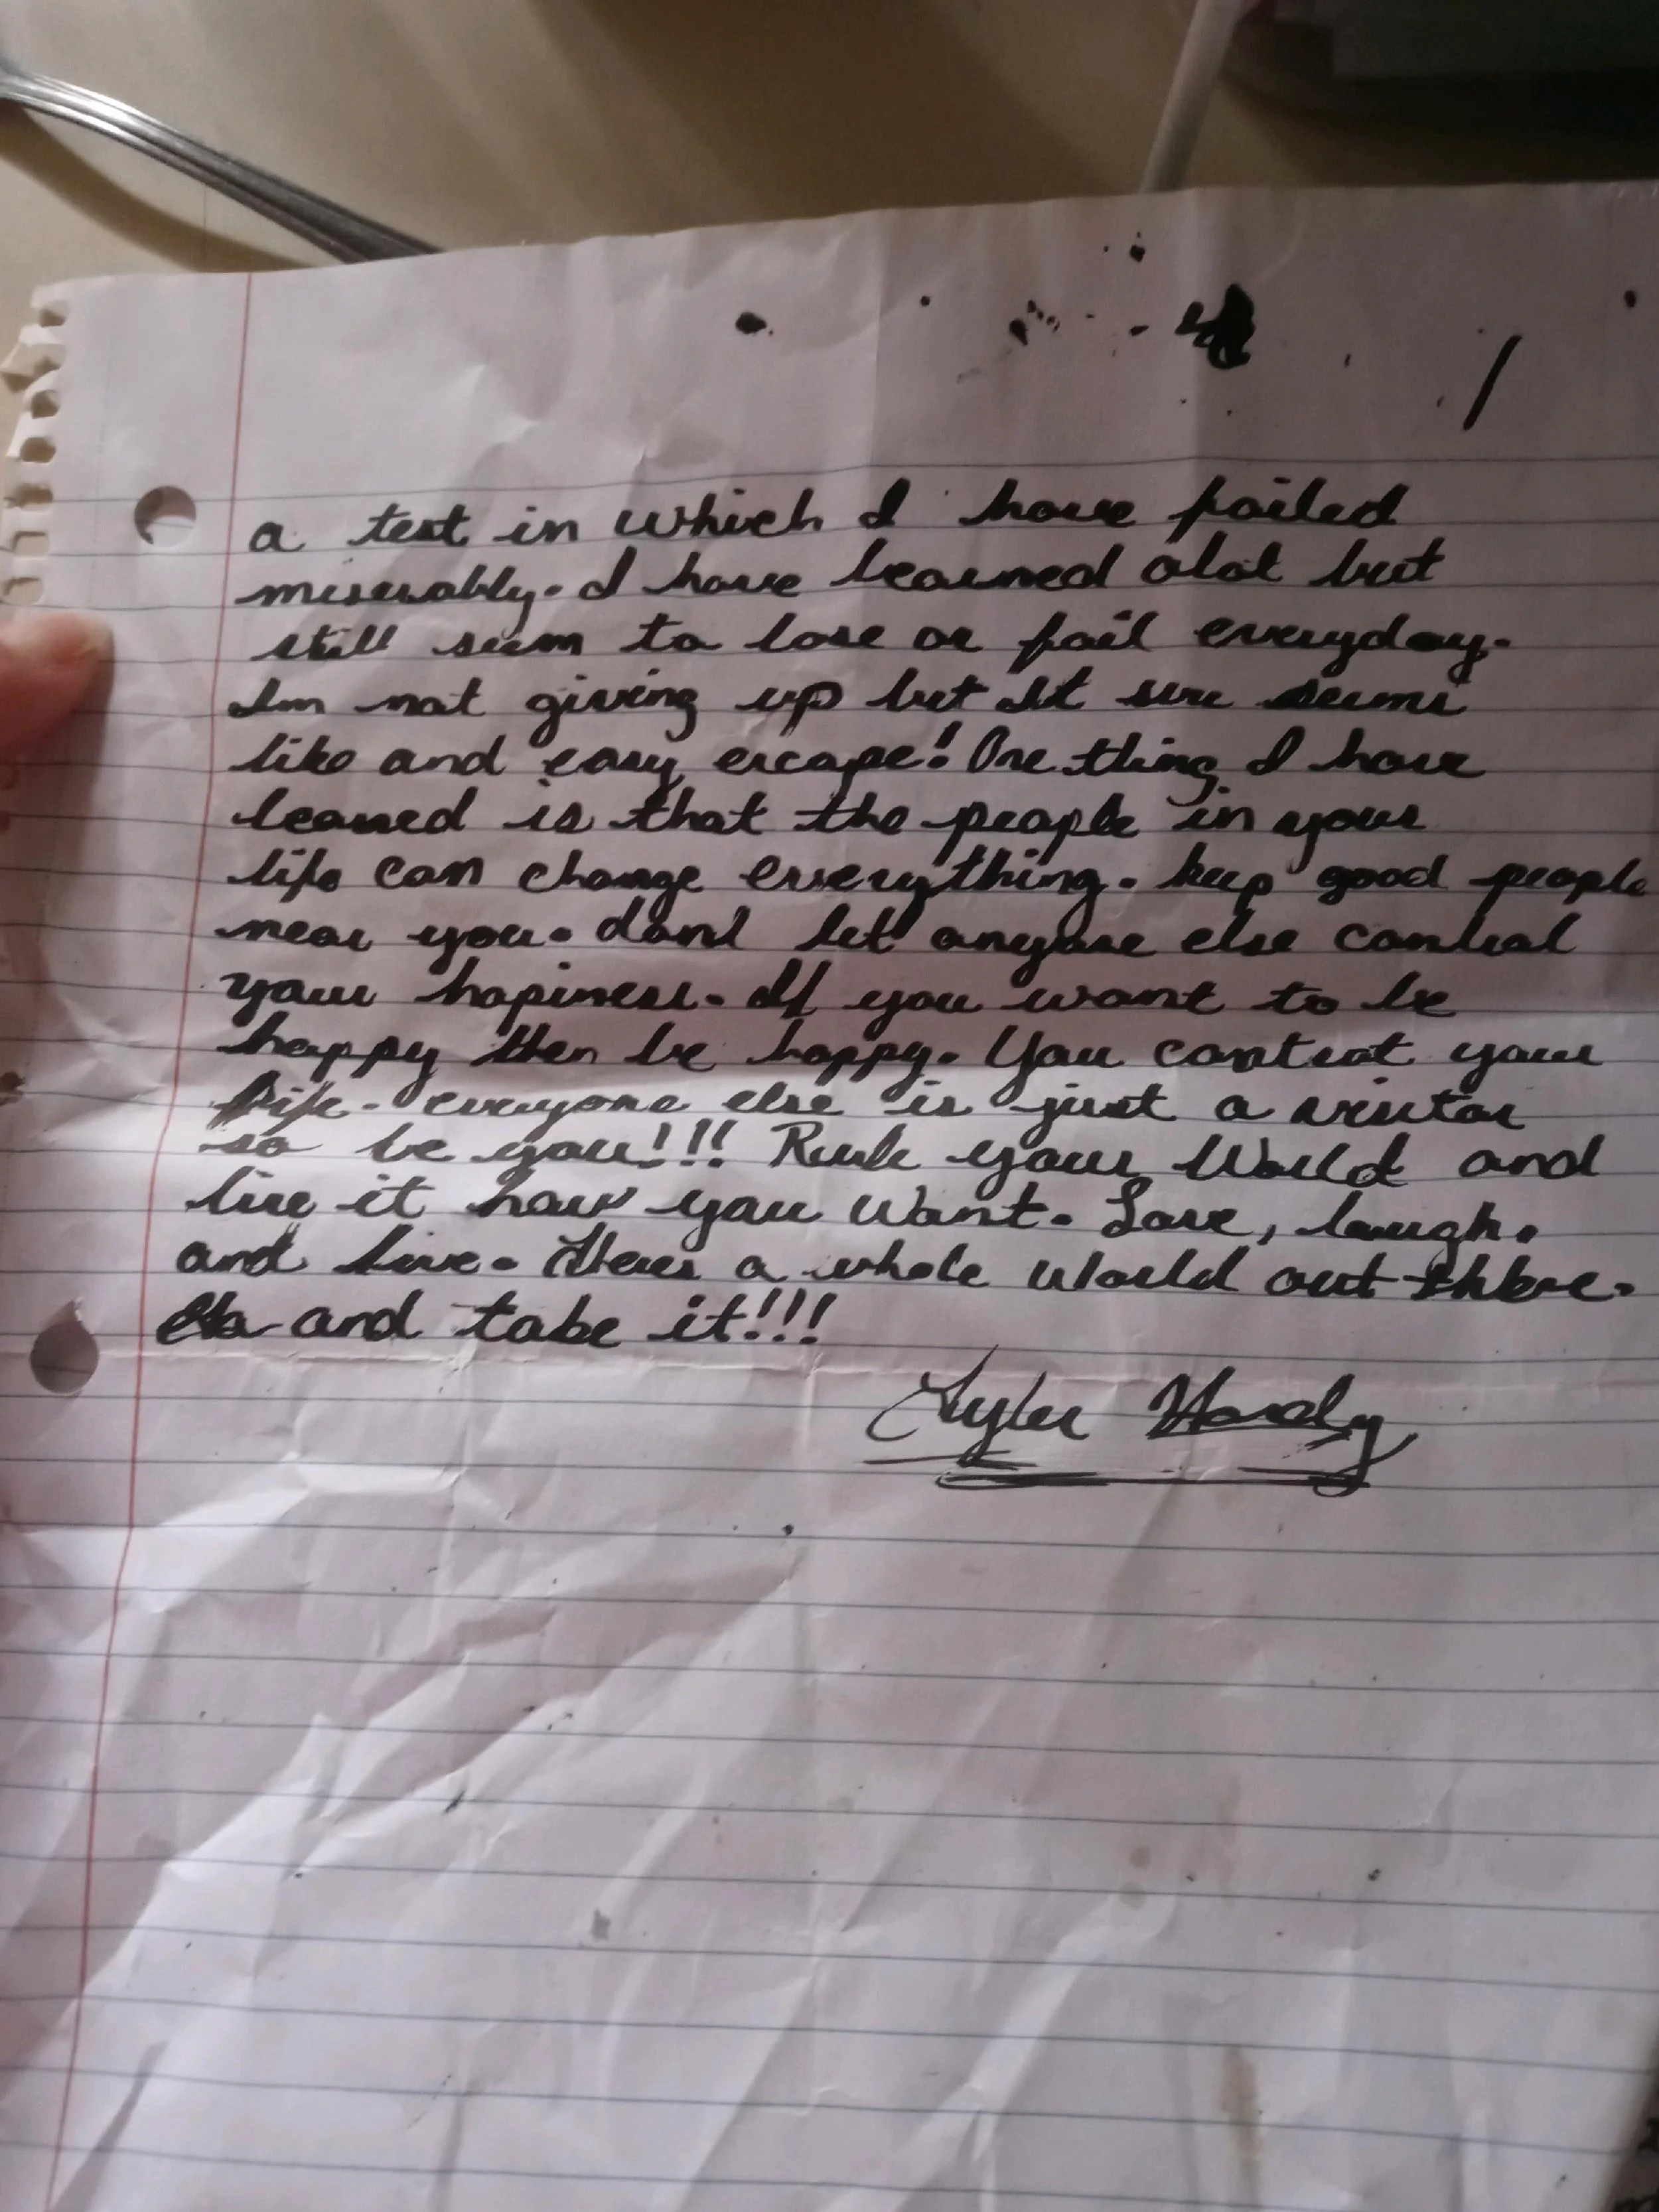 a test in which I have failed
miserably. I have learned alot but
still seem to lose or fail everyday.
Im not giving up but It sure seems
like and easy escape! One thing I have
leaned is that the people in your
life can change everything. keep good people
near you. dont let anyone else control
your hapiness. If you want to be
happy then be happy. You control your
life. everyone else is just a visitor
so be you!!! Rule your World and
live it how you want. Love, laugh,
and live. Theres a whole world out there.
and take it!!!
Tyler Hardy